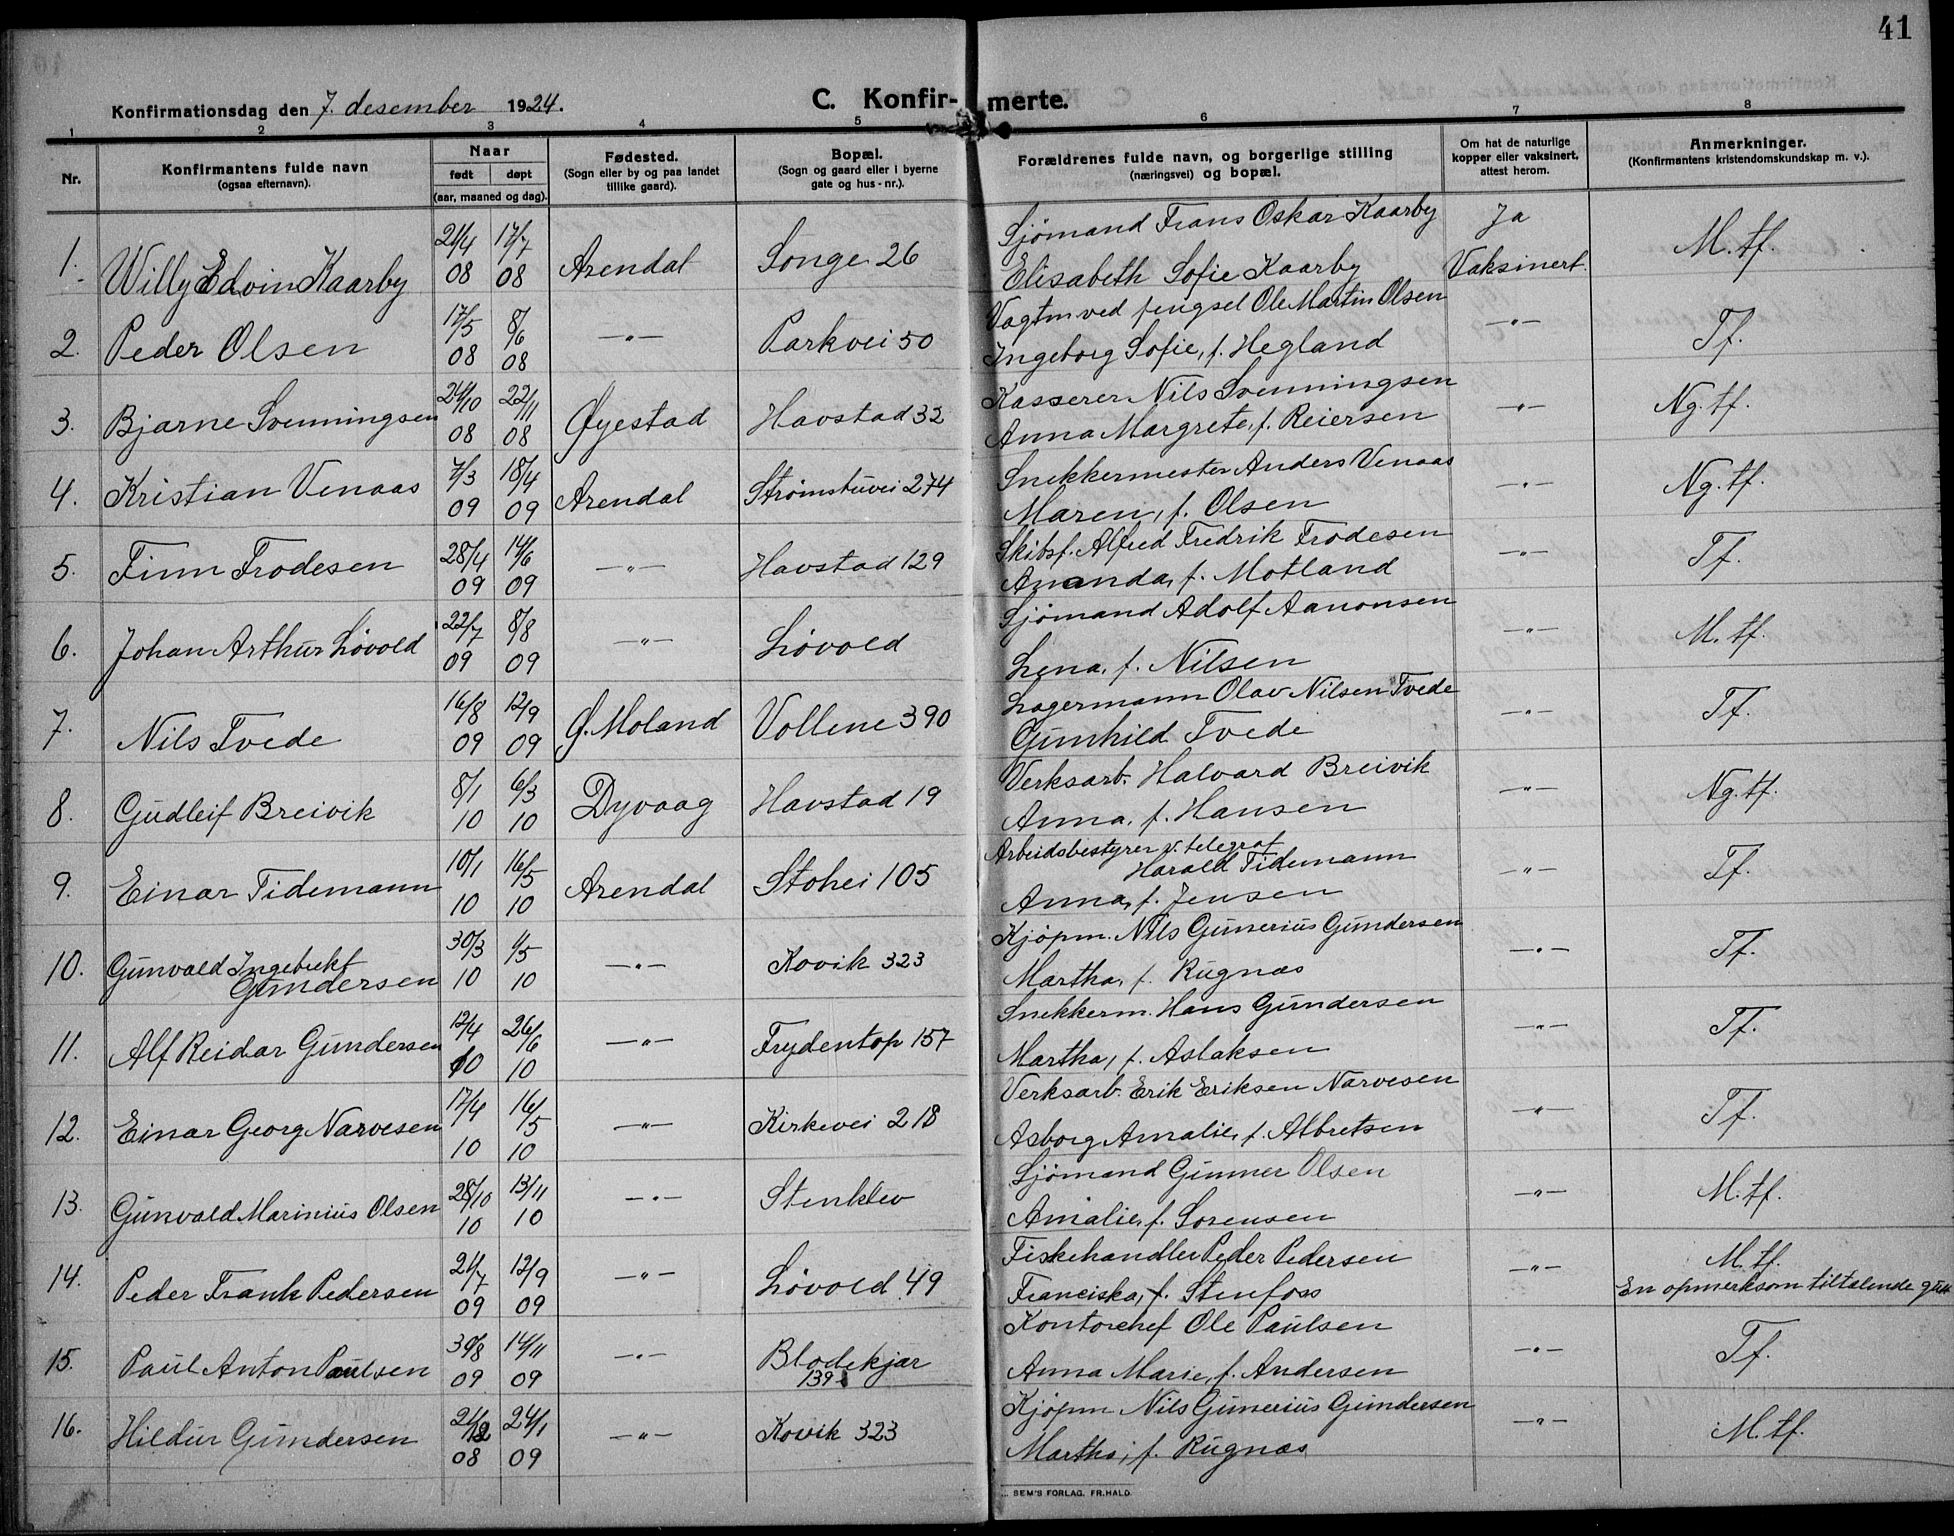 41
Konfirmationsdag den 7. desember 1924.
C. Konfirmerte.
1 2 3 4 5 6 7 8
Nr.
Konfirmantens fulde navn
(ogsaa efternavn).
Naar
født døpt
(aar, maaned og dag).
Fødested.
(Sogn eller by og paa landet
tillike gaard).
Bopæl.
(Sogn og gaard eller i byerne
gate og hus-nr.).
Forældrenes fulde navn, og borgerlige stilling
(næringsvei) og bopæl.
Om hat de naturlige
kopper eller vaksinert,
attest herom.
Anmerkninger.
(Konfirmantens kristendomskundskap m. v.).
Sjømand Frans Oskar Kaarby Ja
1. Willy Edvin Kaarby 21/4 08 17/7 08 Arendal Songe 26 M. tf.
Elisabeth Sofie Kaarby Vaksinert.
Vagtm ved fengsel Ole Martin Olsen
2. Peder Olsen 17/5 08 8/6 08 —"— Parkvei 50 —"— Tf.
Ingeborg Sofie, f. Hegland
Kasserer Nils Svenningsen
3. Bjarne Svenningsen 24/10 08 22/11 08 Øyestad Havstad 32 —"— Ng. tf.
Anna Margrete, f. Reiersen
Snekkermester Anders Venaas
4. Kristian Venaas 7/3 09 18/4 09 Arendal Strømsbuvei 274 —"— Ng. tf.
Maren, f. Olsen
Skibsf. Alfred Fredrik Frodesen
5. Finn Frodesen 28/4 09 14/6 09 —"— Havstad 129 —"— Tf.
Amanda, f. Motland
Sjømand Adolf Aanonsen
6. Johan Arthur Løvold 22/7 09 8/8 09 —"— Løvold —"— M. tf.
Lena, f. Nilsen
Lagermann Olav Nilsen Tvede
7. Nils Tvede 16/8 09 12/9 09 Ø. Moland Vollene 390 —"— Tf.
Gunhild Tvede
Verksarb. Halvard Breivik
8. Gudleif Breivik 8/1 10 6/3 10 Dyvaag Havstad 19 —"— Ng. tf.
Anna, f. Hansen
Arbeidsbestyrer v. telegraf
Harald Tidemann
9. Einar Tidemann 10/1 10 16/5 10 Arendal Stohei 105 —"— Tf.
Anna, f. Jensen
Kjøpm. Nils Gunerius Gundersen
10. Gunvald Ingebrekt
Gundersen 30/3 10 1/5 10 —"— Kovik 323 —"— Tf.
Martha, f. Rugnæs
Snekkerm. Hans Gundersen
11. Alf Reidar Gundersen 12/4 10 26/6 10 —"— Frydentop 157 —"— Tf.
Martha, f. Aslaksen
Verksarb. Erik Eriksen Narvesen
12. Einar Georg Narvesen 17/4 10 16/5 10 —"— Kirkevei 218 —"— Tf.
Asborg Amalie, f. Albretsen
Sjømand Gunner Olsen
13. Gunvald Marinius Olsen 28/10 10 13/11 10 —"— Stenklev —"— M. tf.
Amalie, f. Sorensen
Fiskehandler Peder Pedersen M. tf.
14. Peder Frank Pedersen 21/7 09 12/9 09 —"— Løvold 49 —"—
Franciska, f. Stenfoss En opmerksom tiltalende gutt
Kontorchef Ole Paulsen
15. Paul Anton Paulsen 30/8 09 14/11 09 —"— Blodekjær
139 —"— Tf.
Anna Marie, f. Andersen
Kjøpm Nils Gunerius Gundersen
16. Hildur Gundersen 21/12 08 24/1 09 —"— Kovik 323 —"— M. tf.
Martha, f. Rugnæs
SEM'S FORLAG, FR.HALD